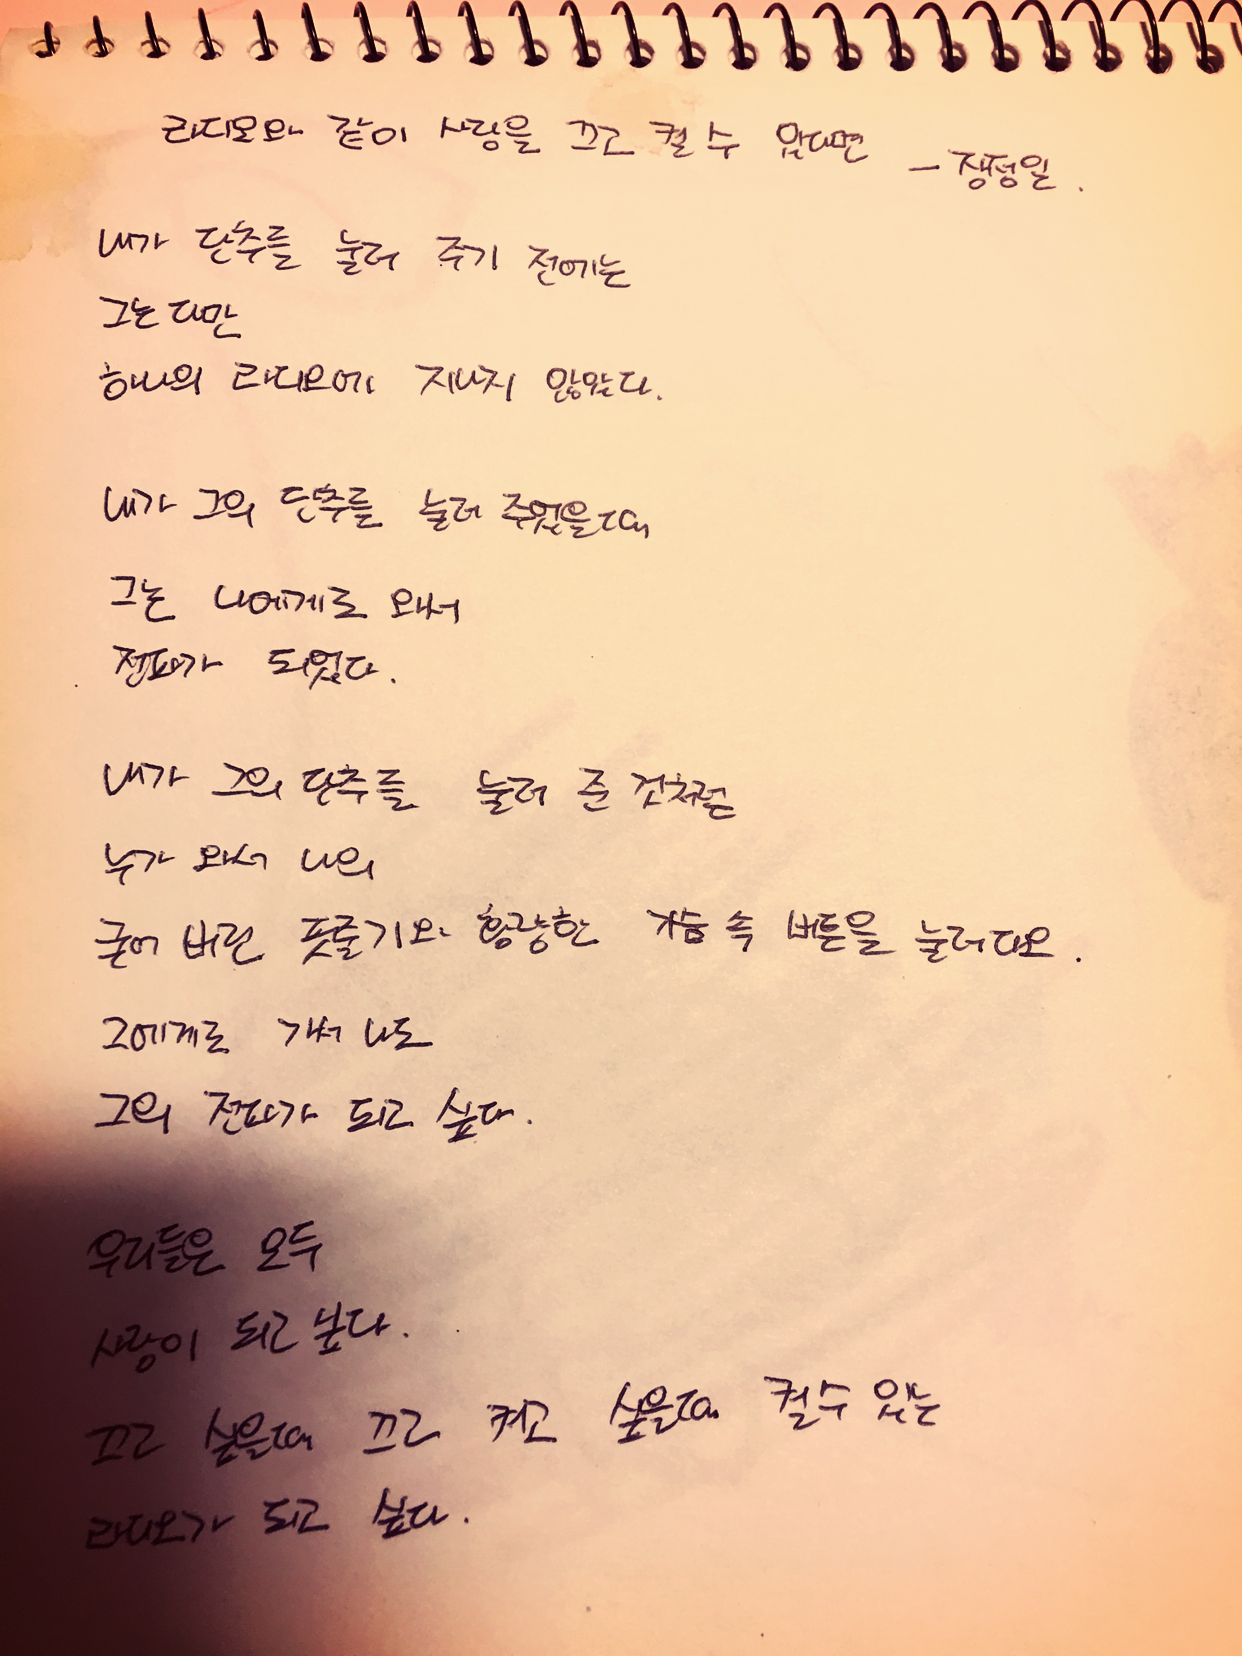 라디오와 같이 사랑을 끄고 켤 수 있다면
- 장정일.
내가 단추를 눌러 주기 전에는
그는 다만
하나의 라디오에 지나지 않았다.
내가 그의 단추를 눌러 주었을 때
그는 나에게로 와서
전파가 되었다.
내가 그의 단추를 눌러 준 것처럼
누가 와서 나의
굳어 버린 핏줄기와 황량한 가슴 속 버튼을 눌러다오.
그에게로 가서 나도
그의 전파가 되고 싶다.
우리들은 모두
사랑이 되고 싶다.
끄고 싶을 때 끄고 켜고 싶을 때 켤 수 있는
라디오가 되고 싶다.